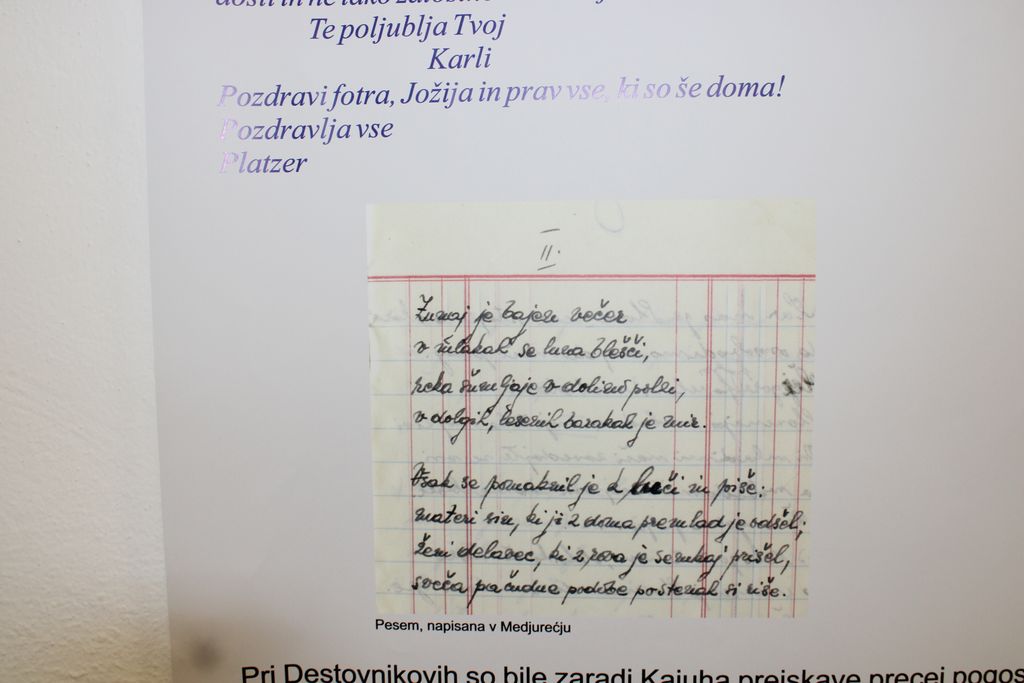 Te poljublja Tvoj
Karli
Pozdravi fotra, Jožija in prav vse, ki so še doma!
Pozdravlja vse
Platzer
II.
Zunaj je bajen večer
v mlakah se luna blešči,
reka šumljaje v dolino polzi,
v dolgih, lesenih barakah je mir.
Vsak se pomaknil je k luči in piše:
materi sin, ki ji z doma premlad je odšel;
ženi delavec, ki z rova je semkaj prišel,
sveča pa čudne podobe po stenah si riše.
Pesem, napisana v Medjurečju
Pri Destovnikovih so bile zaradi Kajuha preiskave precej